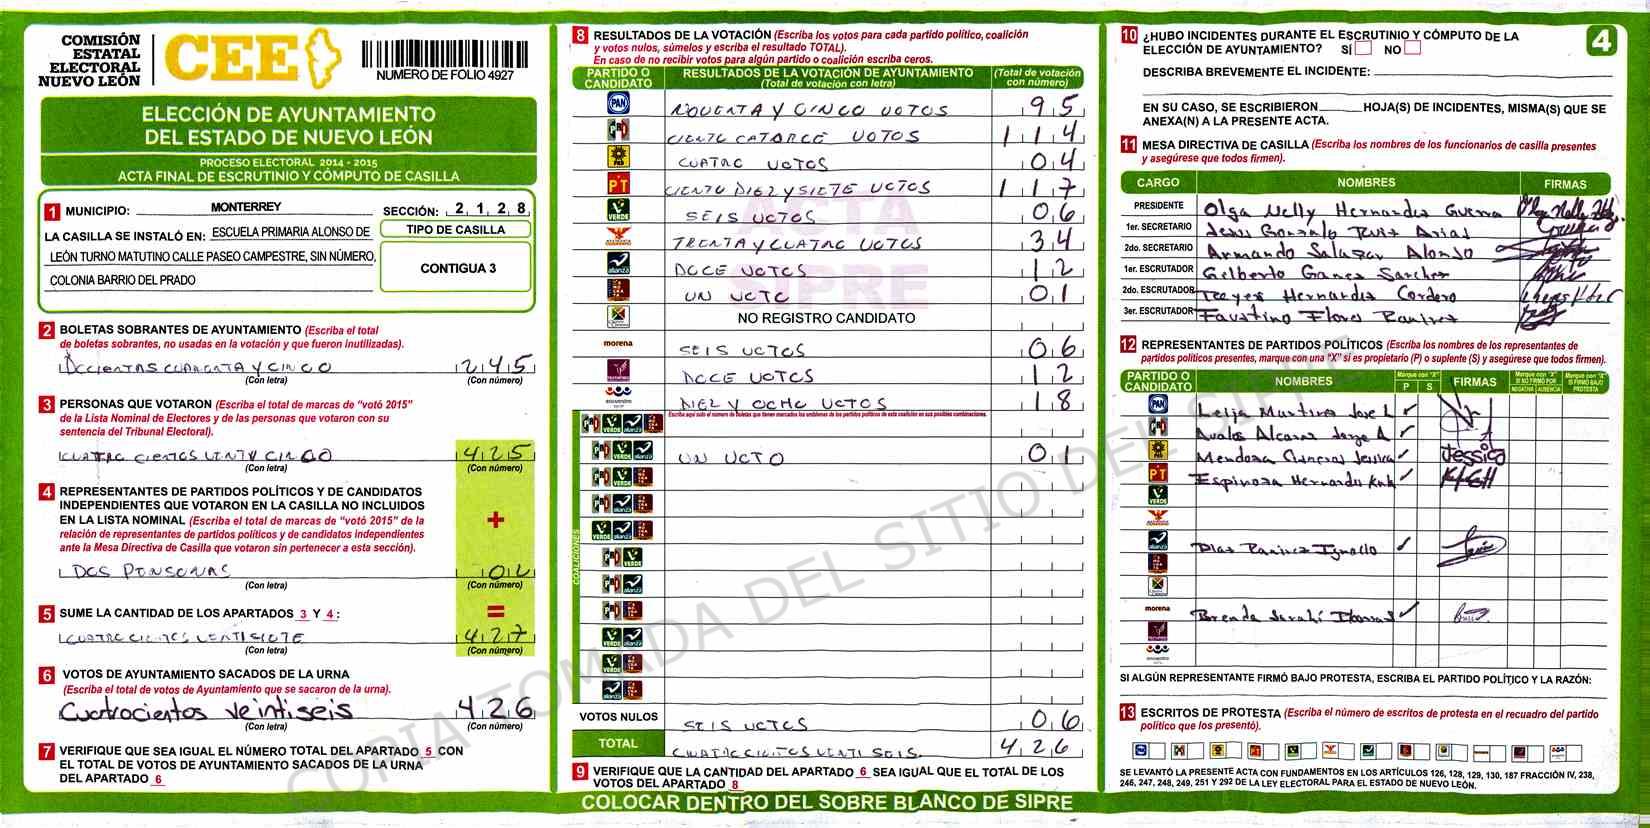 COMISIÓN
ESTATAL
ELECTORAL
NUEVO LEÓN
CEE
NUMERO DE FOLIO 4927
ELECCIÓN DE AYUNTAMIENTO
DEL ESTADO DE NUEVO LEÓN
PROCESO ELECTORAL 2014 - 2015
ACTA FINAL DE ESCRUTINIO Y CÓMPUTO DE CASILLA
1 MUNICIPIO: MONTERREY SECCIÓN: 2 1 2 8
LA CASILLA SE INSTALÓ EN: ESCUELA PRIMARIA ALONSO DE
LEÓN TURNO MATUTINO CALLE PASEO CAMPESTRE, SIN NÚMERO,
COLONIA BARRIO DEL PRADO
TIPO DE CASILLA
CONTIGUA 3
2 BOLETAS SOBRANTES DE AYUNTAMIENTO (Escriba el total
de boletas sobrantes, no usadas en la votación y que fueron inutilizadas).
DOCIENTAS CUARENTA Y CINCO 245
(Con letra) (Con número)
3 PERSONAS QUE VOTARON (Escriba el total de marcas de “votó 2015”
de la Lista Nominal de Electores y de las personas que votaron con su
sentencia del Tribunal Electoral).
CUATRO CIENTOS VENTY CINCO 425
(Con letra) (Con número)
4 REPRESENTANTES DE PARTIDOS POLÍTICOS Y DE CANDIDATOS
INDEPENDIENTES QUE VOTARON EN LA CASILLA NO INCLUIDOS
EN LA LISTA NOMINAL (Escriba el total de marcas de “votó 2015” de la
relación de representantes de partidos políticos y de candidatos independientes
ante la Mesa Directiva de Casilla que votaron sin pertenecer a esta sección).
+
DOS PERSONAS 02
(Con letra) (Con número)
5 SUME LA CANTIDAD DE LOS APARTADOS 3 Y 4 : =
CUATRO CIENTOS VENTISIETE 427
(Con letra) (Con número)
6 VOTOS DE AYUNTAMIENTO SACADOS DE LA URNA
(Escriba el total de votos de Ayuntamiento que se sacaron de la urna).
Cuatrocientos veintiseis 426
(Con letra) (Con número)
7 VERIFIQUE QUE SEA IGUAL EL NÚMERO TOTAL DEL APARTADO 5 CON
EL TOTAL DE VOTOS DE AYUNTAMIENTO SACADOS DE LA URNA
DEL APARTADO 6
8 RESULTADOS DE LA VOTACIÓN (Escriba los votos para cada partido político, coalición
y votos nulos, súmelos y escriba el resultado TOTAL).
En caso de no recibir votos para algún partido o coalición escriba ceros.
PARTIDO O CANDIDATO RESULTADOS DE LA VOTACIÓN DE AYUNTAMIENTO (Total de votación con letra) (Total de votación con número)
PAN NOVENTA Y CINCO VOTOS 95
PRI CIENTO CATORCE VOTOS 114
PRD CUATRO VOTOS 04
PT CIENTO DIEZ Y SIETE VOTOS 117
VERDE SEIS VOTOS 06
TRENTA Y CUATRO VOTOS 34
alianza DOCE VOTOS 12
UN VOTO 01
NO REGISTRO CANDIDATO
morena SEIS VOTOS 06
DOCE VOTOS 12
encuentro DIEZ Y OCHO VOTOS 18
Escriba aquí sólo el número de boletas que tienen marcados los emblemas de los partidos políticos de esta coalición en sus posibles combinaciones.
COALICIONES
PRI VERDE alianza
PRI VERDE alianza UN VOTO 01
PRI VERDE
PRI alianza
VERDE alianza
PRI VERDE
PRI alianza
PRI
VERDE alianza
VERDE
alianza
VOTOS NULOS SEIS VOTOS 06
TOTAL CUATROCIENTOS VENTI SEIS. 426
9 VERIFIQUE QUE LA CANTIDAD DEL APARTADO 6 SEA IGUAL QUE EL TOTAL DE LOS
VOTOS DEL APARTADO 8
COLOCAR DENTRO DEL SOBRE BLANCO DE SIPRE
ACTA
SIPRE
COPIA TOMADA DEL SITIO DEL SIPRE
4
10 ¿HUBO INCIDENTES DURANTE EL ESCRUTINIO Y CÓMPUTO DE LA
ELECCIÓN DE AYUNTAMIENTO? SÍ NO
DESCRIBA BREVEMENTE EL INCIDENTE:
EN SU CASO, SE ESCRIBIERON HOJA(S) DE INCIDENTES, MISMA(S) QUE SE
ANEXA(N) A LA PRESENTE ACTA.
11 MESA DIRECTIVA DE CASILLA (Escriba los nombres de los funcionarios de casilla presentes
y asegúrese que todos firmen).
CARGO NOMBRES FIRMAS
PRESIDENTE Olga Nelly Hernandez Guerra
1er. SECRETARIO Gonzalo Ruiz Arias
2do. SECRETARIO Armando Salazar Alonso
1er. ESCRUTADOR Gilberto Gamez Sanchez
2do. ESCRUTADOR Reyes Hernandez Cordero
3er. ESCRUTADOR Faustino Flores Ramirez
12 REPRESENTANTES DE PARTIDOS POLÍTICOS (Escriba los nombres de los representantes de
partidos políticos presentes, marque con una “X” si es propietario (P) o suplente (S) y asegúrese que todos firmen).
PARTIDO O CANDIDATO NOMBRES Marque con “X” P S FIRMAS Marque con “X” SI NO FIRMÓ POR NEGATIVA AUSENCIA Marque con “X” SI FIRMÓ BAJO PROTESTA
PAN Leija Martinez Jose L
PRI Avalos Alcaraz Jorge A
PRD Mendoza Jessica Jessica
PT Espinoza Hernandez
VERDE
alianza Diaz Ramirez Ignacio
morena Brenda Sarahí
encuentro
SI ALGÚN REPRESENTANTE FIRMÓ BAJO PROTESTA, ESCRIBA EL PARTIDO POLÍTICO Y LA RAZÓN:
13 ESCRITOS DE PROTESTA (Escriba el número de escritos de protesta en el recuadro del partido
político que los presentó).
SE LEVANTÓ LA PRESENTE ACTA CON FUNDAMENTOS EN LOS ARTÍCULOS 126, 128, 129, 130, 187 FRACCIÓN IV, 238,
246, 247, 248, 249, 251 Y 292 DE LA LEY ELECTORAL PARA EL ESTADO DE NUEVO LEÓN.